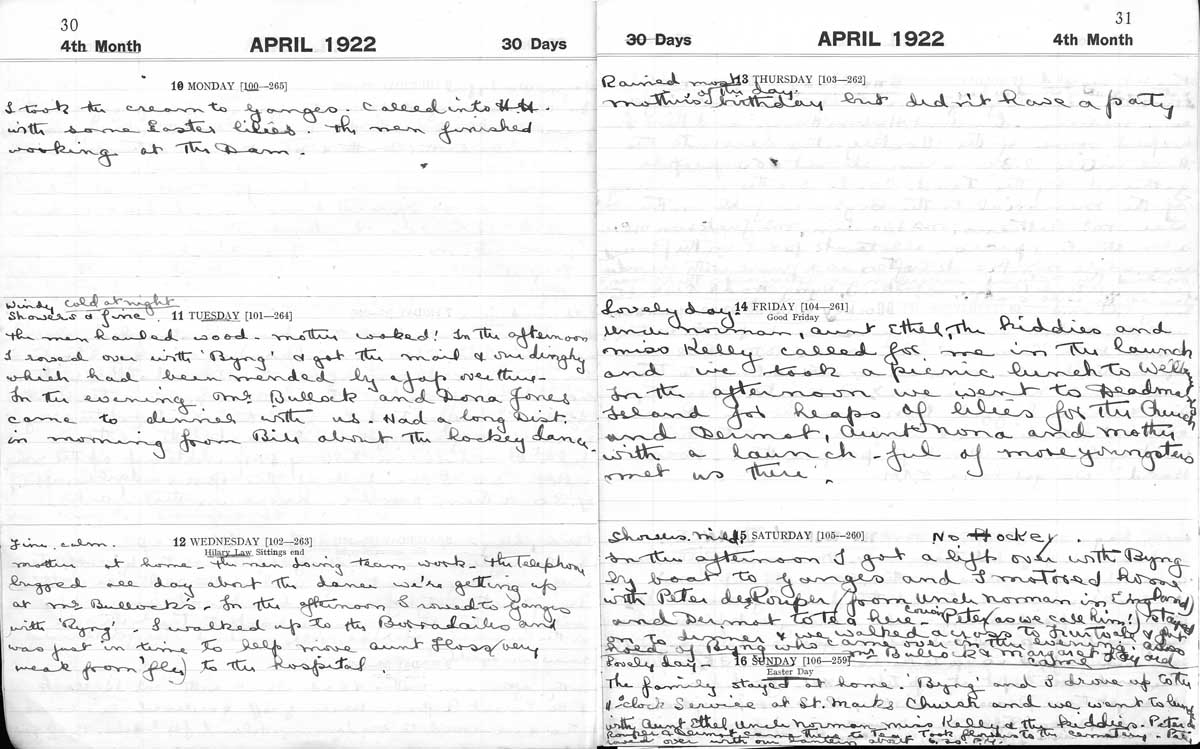 30
4th Month APRIL 1922 30 Days
10 MONDAY [100—265]
I took the cream to Ganges. Called into H H.
with some Easter lilies. The men finished
working at the Dam.
Windy cold at night
Showers & fine. 11 TUESDAY [101—264]
The men hauled wood. Mother washed! In the afternoon
I rowed over with 'Byng' & got the mail & our dinghy
which had been mended by a Jap over there.
In the evening Mr. Bullock and Dona Jones
came to dinner with us. Had a long Dist.
in morning from Bill about the hockey dance.
12 WEDNESDAY [102—263]
Hilary Law Sittings end
Fine, calm.
Mother at home. The men doing team work. The telephone
buzzed all day about the dance we're getting up
at Mr Bullock's. In the afternoon I rowed to Ganges
with 'Byng'. I walked up to the Borradailes and
was just in time to help move Aunt Floss (very
weak from 'flu) to the hospital.
31
30 Days APRIL 1922 4th Month
13 THURSDAY [103—262]
Rained most of the day.
Mother's birthday but didn't have a party
Lovely day. 14 FRIDAY [104—261]
Good Friday
Uncle Norman, Aunt Ethel, the kiddies and
Miss Kelly called for me in the launch
and we took a picnic lunch to
In the afternoon we went to Deadman's
Island for heaps of lilies for the Church
and Dermot, Aunt Nona and Mother
with a launch-ful of more youngsters
met us there.
Showers. mild. 15 SATURDAY [105—260] No Hockey.
In the afternoon I got a lift over with Byng
by boat to Ganges and I motored home
with Peter de (from Uncle Norman in England)
and Dermot to tea here. Cousin Peter (as we call him!) stayed
on to dinner & we walked across to & got
hold of Byng who came over in the evening, also
Mr Bullock & Margaret came
Lovely day. 16 SUNDAY [106—259]
Easter Day
The family stayed at home. 'Byng' and I drove up to the
11 o'clock Service at St. Marks Church and we went to lunch
with Aunt Ethel, Uncle Norman, Miss Kelly & the kiddies. Peter de
& Dermot came there to Tea. Took flowers to the cemetery.
over with our about 6.30 P.M.